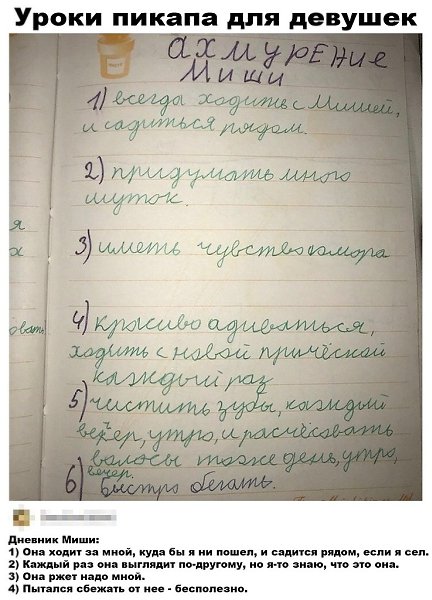 Уроки пикапа для девушек
ахмурение
Миши
1) всегда ходить с Мишей,
и садиться рядом.
2) придумать много
шуток.
3) иметь чувство юмора
4) красиво адиваться,
ходить с новой причёской
каждый раз
5) чистить зубы, каждый
вечер, утро, и расчёсовать
волосы тоже день, утро,
вечер.
6) Быстро бегать.
я
х
овать
Дневник Миши:
1) Она ходит за мной, куда бы я ни пошел, и садится рядом, если я сел.
2) Каждый раз она выглядит по-другому, но я-то знаю, что это она.
3) Она ржет надо мной.
4) Пытался сбежать от нее - бесполезно.